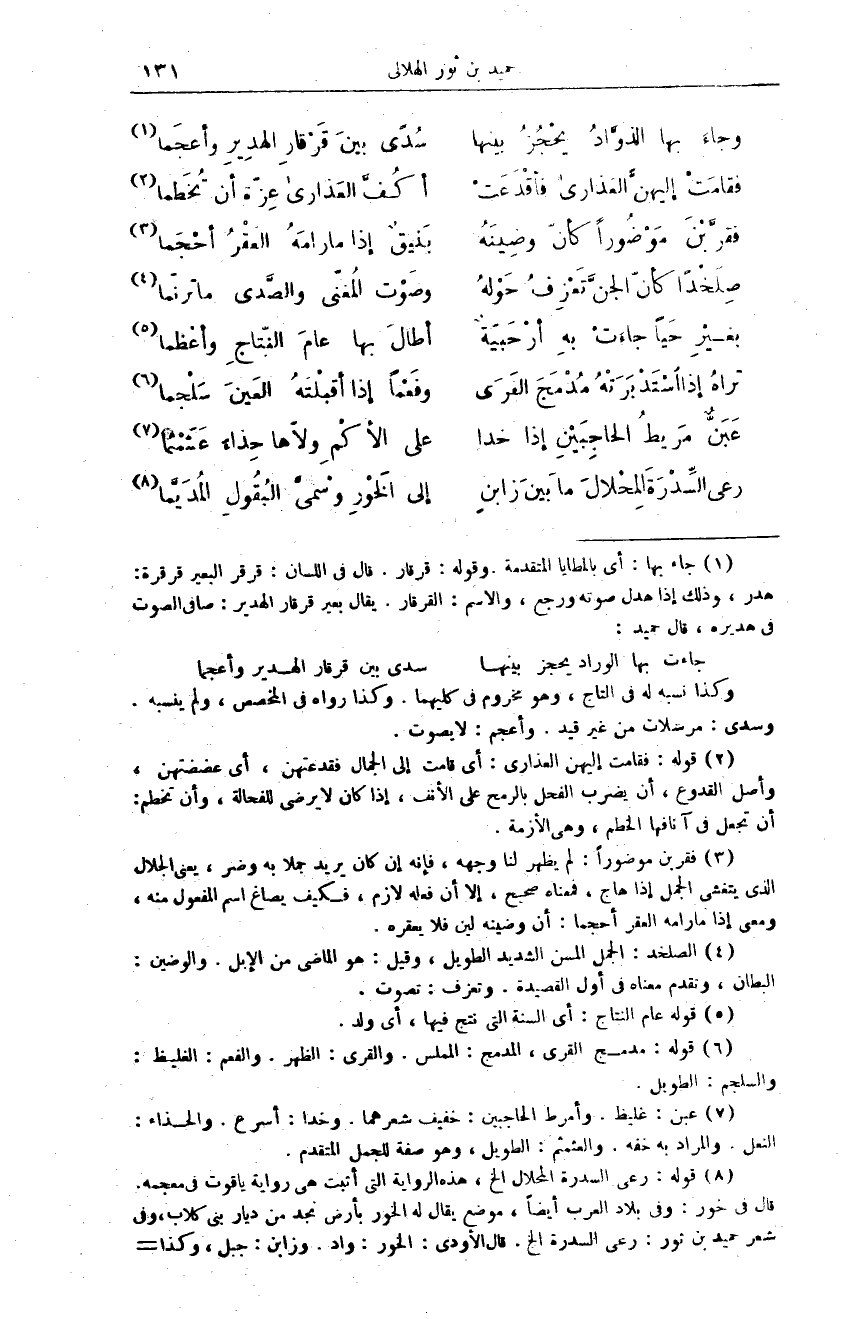 حميد بن ثور الهلالى ١٣١
وجاءَ بها الذوَّادُ يَحْجُزُ بينها سُدًى بينَ قَرْقارِ الهديرِ وأعجَما(١)
فقامَتْ إليهنَّ العَذارىٰ فأقْدَعَتْ أكُفَّ العَذارىٰ عِزّة أن تُخَطَما(٢)
فقرَّبْنَ مَوْضُوراً كأنّ وضِينَهُ بَنِيقٌ إذا مارامَهُ العَقْرُ أحْجَما(٣)
صِلَخْدًا كأنّ الجنَّ تَعْزِفُ حَوْلهُ وصَوْت المُغنّى والصَّدى ماترنّما(٤)
بغيْرِ حَياً جاءَتْ بهِ أرْحَبِيّةٌ أطالَ بها عامَ النِّتاجِ وأعْظما(٥)
تراهُ إذا اُسْتَدْبَرَتْهُ مُدْمَجَ القَرَى وفَعْماً إذا أقبلْتَهُ العَينَ سَلْجما(٦)
عَبَنٌّ مَرِيطُ الحاجِبَيْنِ إذا خدا على الأكْمِ ولاّها حِذاءَ عَثَمْثماً(٧)
رعى السِّدْرَةَ المِحْلالَ ما بين زابنٍ إلى الَخوْرِ وسْمىَّ البُقُولِ المُدَيَّما(٨)
(١) جاء بها : أى بالمطايا المتقدمة . وقوله : قرقار . قال فى اللسان : قرقر البعير قرقرة :
هدر ، وذلك إذا هدل صوته ورجع ، والاسم : القرقار . يقال بعير قرقار الهدير : صافى الصوت
فى هديره ، قال حميد :
جاءت بها الوراد يحجز بينهـا سدى بين قرقار الهـدير وأعجما
وكذا نسبه له فى التاج ، وهو مخروم فى كليهما . وكذا رواه فى المخصص ، ولم ينسبه .
وسدى : مرسلات من غير قيد . وأعجم : لايصوت .
(٢) قوله : فقامت إليهن العذارى : أى قامت إلى الجمال فقدعتهن ، أى عضضتهن ،
وأصل القدوع ، أن يضرب الفحل بالرمح على الأنف ، إذا كان لايرضى للفحالة ، وأن تخطم :
أن تجعل فى آنافها الخطم ، وهى الأزمة .
(٣) فقربن موضوراً : لم يظهر لنا وجهه ، فإنه إن كان يريد جملا به وضر ، يعنى الجلال
الذى يتغشى الجمل إذا هاج ، فمعناه صحيح ، إلا أن فعله لازم ، فـكيف يصاغ اسم المفعول منه ،
ومعى إذا مارامه العقر أحجما : أن وضينه لين فلا يعقره .
(٤) الصلخد : الجمل المسن الشديد الطويل ، وقيل : هو الماضى من الإبل . والوضين :
البطان ، وتقدم معناه فى أول القصيدة . وتعزف : تصوت .
(٥) قوله عام النتاج : أى السنة التى نتج فيها ، أى ولد .
(٦) قوله : مدمـج القرى ، المدمج : المملس . والقرى : الظهر . والفعم : الغليظ :
والسلجم : الطويل .
(٧) عبن : غليظ . وأمرط الحاجبين : خفيف شعرهما . وخدا : أسرع . والحـذاء :
النعل . والمراد به خفه . والعثمثم : الطويل ، وهو صفة للجمل المتقدم .
(٨) قوله : رعى السدرة المحلال الخ ، هذه الرواية التى أثبت هى رواية ياقوت فى معجمه .
قال فى خور : وفى بلاد العرب أيضاً ، موضع يقال له الخور بأرض نجد من ديار بنى كلاب ، وفى
شعر حميد بن ثور : رعى السدرة الخ . قال الأودى : الخور : واد . وزابن : جبل ، وكذا =